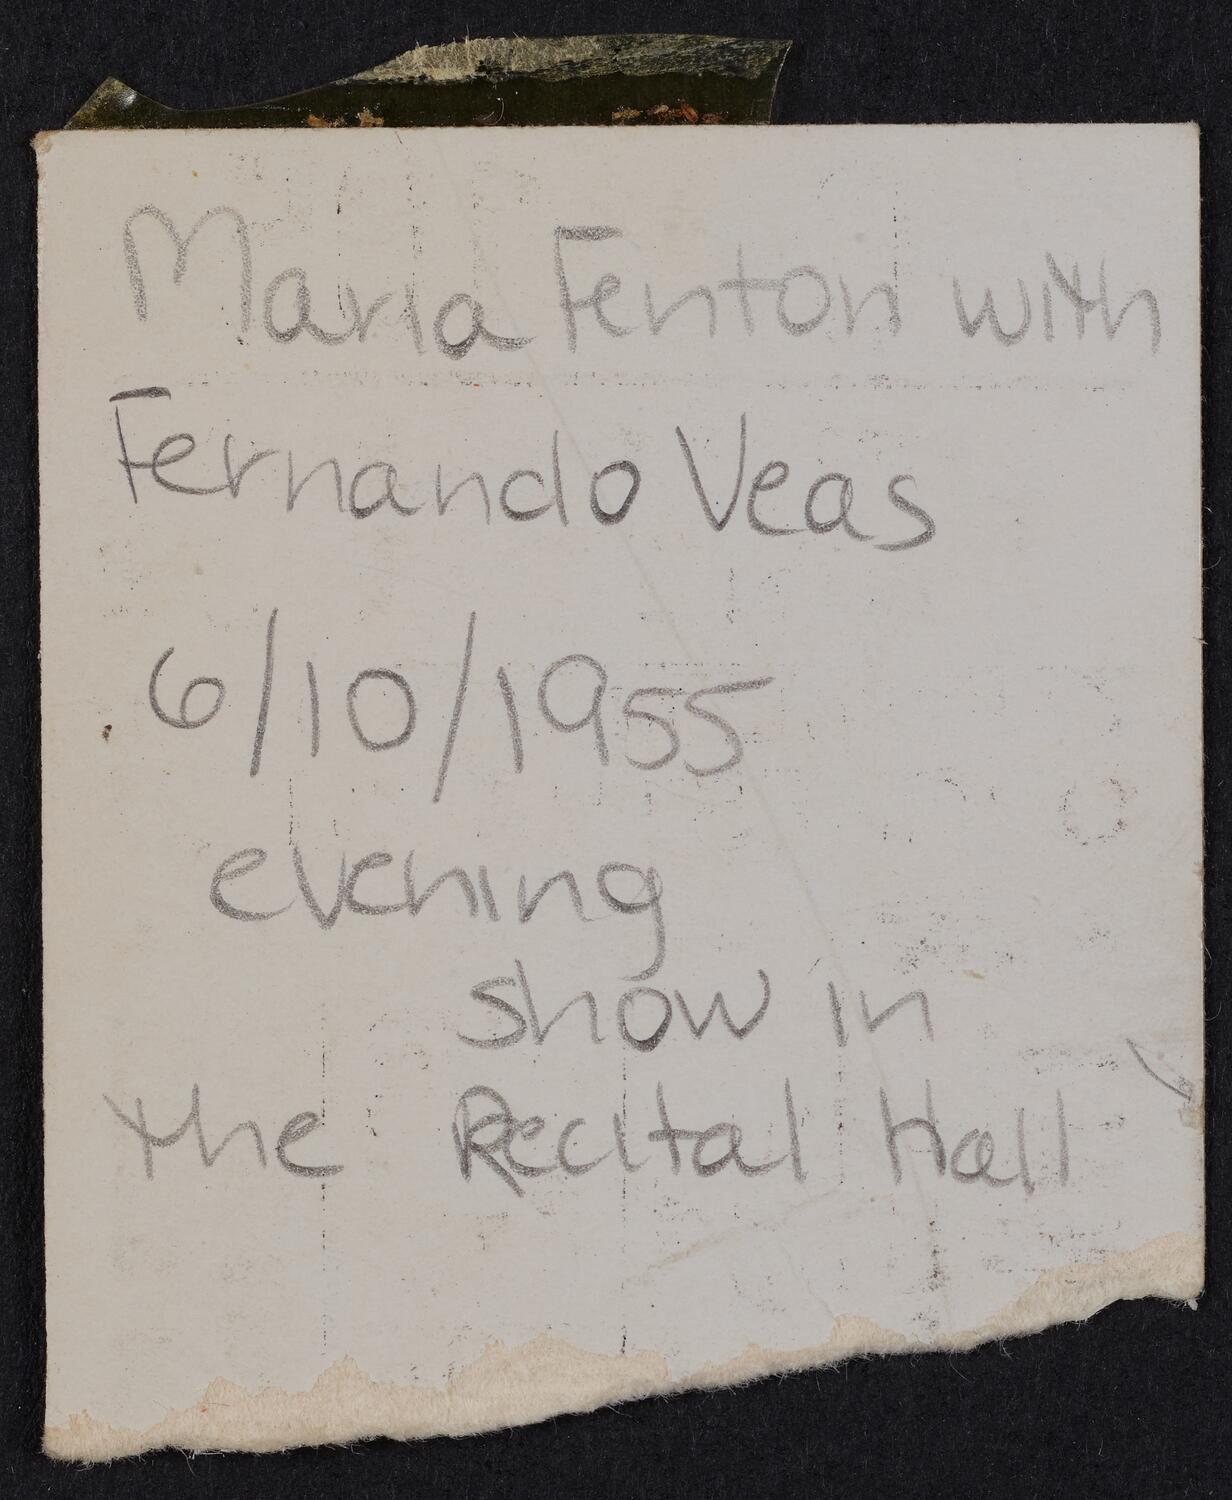 Maria Fenton with
Fernando Veas
6/10/1955
evening
show in
the Recital Hall